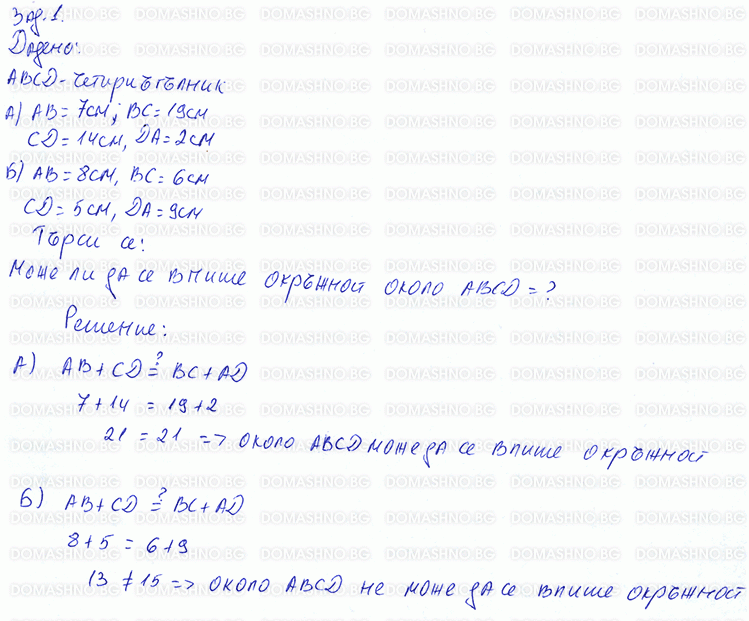 Зад.1.
Дадено:
ABCD - четириъгълник
А) AB = 7см; BC = 19см
CD = 14см, DA = 2см
Б) AB = 8см, BC = 6см
CD = 5см, DA = 9см
Търси се:
Може ли да се впише окръжност около ABCD = ?
Решение:
А) AB + CD ?= BC + AD
7 + 14 = 19 + 2
21 = 21 => около ABCD може да се впише окръжност
Б) AB + CD ?= BC + AD
8 + 5 = 6 + 9
13 ≠ 15 => около ABCD не може да се впише окръжност